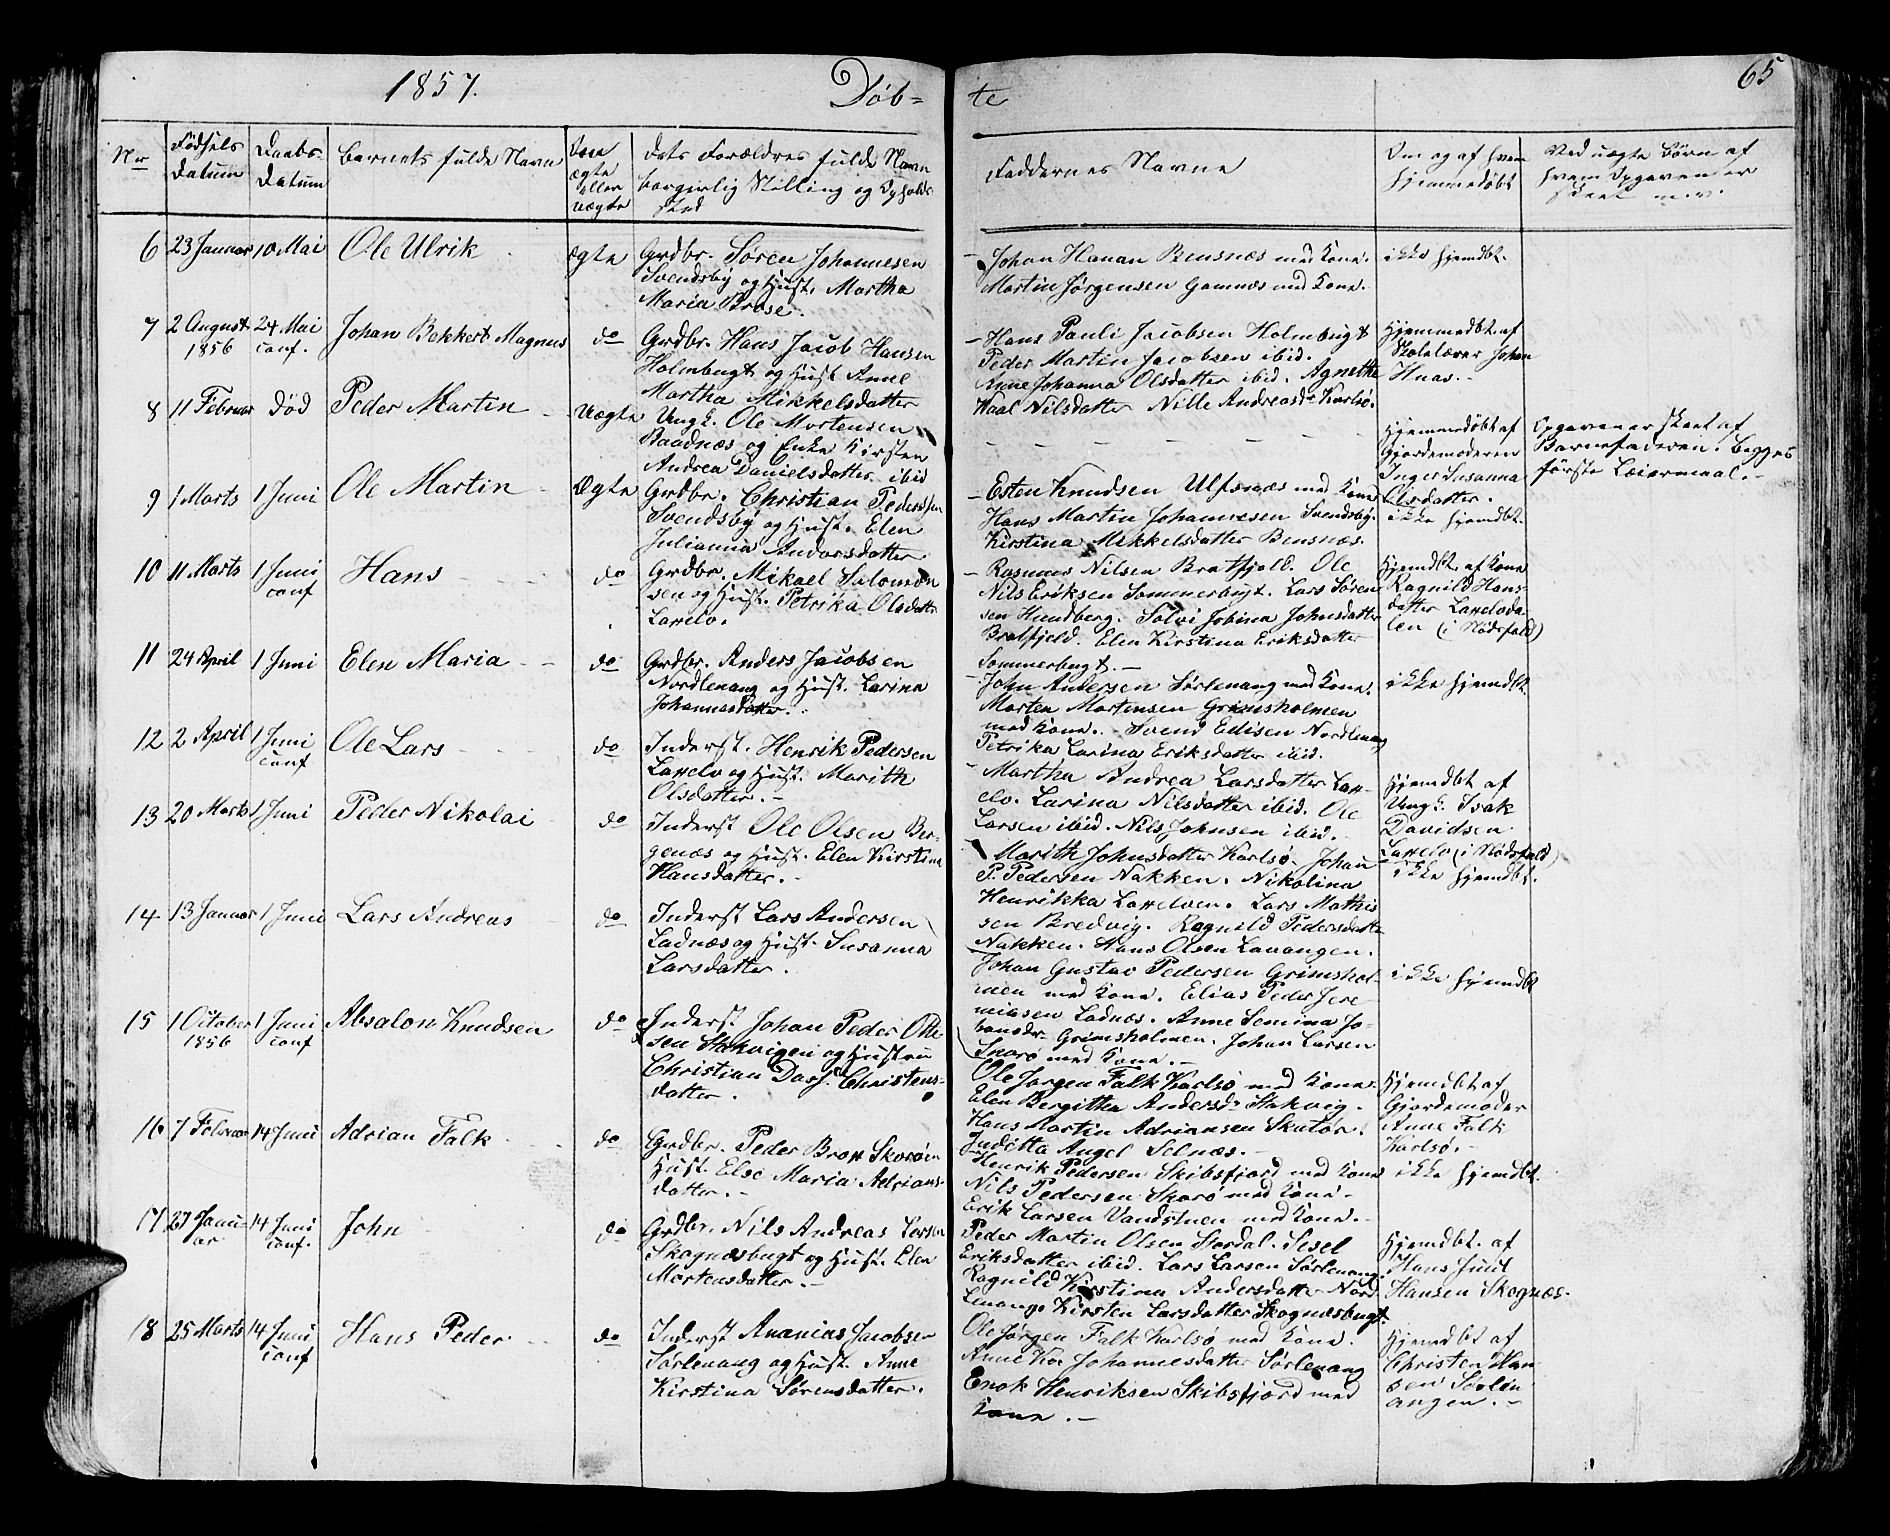 1857.
Døb=
te
65
Nr
Fødsels Datum
Daabs- Datum
Barnets fulde Navn
Om ægte eller uægte
Dets Forældres fulde Navn borgerlig Stilling og Opholdssted
Faddernes Navne
Om og af hvem hjemmedøbt
Ved uægte Børn af hvem Opgaven er skeet m. v.
6 23 Januar 10 Mai Ole Ulrik ægte
Grdbr. Søren Johannesen
Svendsby og Hust. Martha
Maria Brose.
Johan Hanan Bensnæs med Kone.
Martin Jørgensen Gamnæs med Kone.
ikke hjemdbt.
7 2 August 1856 24 Mai conf. Johan Bekkert Magnus do
Grdbr. Hans Jacob Hansen
Holmbugt og Hust. Anne
Martha Mikkelsdatter
Hans Pauli Jacobsen Holmbugt
Peder Martin Jacobsen ibid.
Anne Johanna Olsdatter ibid. Agnethe
Waal Nilsdatter Nille Andreasdr Karlsø.
Hjemmedbt. af
Skolelærer Johan
Huas.
8 11 Februar Død Peder Martin uægte
Ungk. Ole Mortensen
Baadnæs og Enke Kirsten
Andrea Danielsdatter ibid
Hjemmedøbt af
Gjordemoderen
Inger Susanna
Olsdatter.
Opgaven er skeet af
Barnefaderen. Begges
første Leiermaal.
9 1 Marts 1 Juni Ole Martin Ægte
Grdbr. Christian Pedersen
Svendsby og Hust. Elen
Julianna Andorsdatter
Esten Knudsen Ulfsnæs med Kone
Hans Martin Johannesen Svendsby.
Kirstina Mikkelsdatter Bensnæs.
ikke hjemdbt.
10 11 Marts 1 Juni conf Hans do
Grdbr. Mikael Salomon
sen og Hust. Petrika Olsdatter
Laxelv.
Rasmus Nilsen Bratfjeld. Ole
Nils Eriksen Sommerbugt. Lars Søren
sen Hundberg. Solvi Johina Johnsdatter
Bratfjeld. Elen Kirstina Eriksdatter
Sommerbugt.
Hjemdbt. af Kone
Ragnild Hans-
datter Laxelvda-
len (i Nødsfald)
11 24 April 1 Juni Elen Maria do
Grdbr. Anders Jacobsen
Nordlenang og Hust. Larina
Johannasdatter.
John Andersen Sørlenang med Kone.
Morten Mortensen Grimsholmen
med Kone. Svend Edisen Nordlenang
Petrika Larina Eriksdatter ibid.
ikke hjemdbt
12 2 April 1 Juni conf Ole Lars do
Inderst. Henrik Pedersen
Laxelv og Hust. Marith
Olsdatter.
Martha Andrea Larsdatter Lax-
elv. Larina Nilsdatter ibid. Ole
Larsen ibid. Nils Johnsen ibid.
Hjemdbt af
Ungk. Isak
Davidsen
Laxelv (i Nødsfald)
13 20 Marts 1 Juni Peder Nikolai do
Inderst Ole Olsen Ber-
genæs og Hust. Elen Kirstina
Hansdatter.
Marith Johnsdatter Karlsø. Johan
P. Pedersen Nakken. Nikolina
Henrikka Laxelven. Lars Mathis
sen Bredvig. Ragnild Pedersdatter
Nakken. Hans Olsen Lavangen.
ikke hjemdbt.
14 13 Januar 1 Juni Lars Andreas do
Inderst Lars Andersen
Ladnæs og Hust. Susanna
Larsdatter.
Johan Gustav Pedersen Grimshol-
men med Kone. Elias Peder Jere
miasen Ladnæs. Anne Semina Jo-
hansdr Grimsholmen. Johan Larsen
Skorø med Kone.
ikke hjemdbt
15 1 October 1856 1 Juni conf Absalon Knudsen do
Inderst. Johan Peder Otte
sen Stakvigen og Hustru
Christian Dass. Christens-
datter.
Ole Jørgen Falk Karlsø med Kone.
Elen Bergitha Andersdr Stakvig.
Hans Martin Adriansen Skatør.
Juditta Angel Selnæs.
Hjemdbt af
Gjordemoder
Anne Falk
Karlsø.
16 7 Februar 14 Juni Adrian Falk do
Grdbr. Peder Brox Skorøen
Hust. Else Maria Adrians-
datter.
Henrik Pedersen Skibsfjord med Kone
Nils Pedersen Skorø med Kone.
Erik Larsen Vandstuen med Kone.
ikke hjemdbt.
17 27 Janu- ar 14 Juni conf. John do
Grdbr. Nils Andreas Larsen
Skognæsbugt og Hust. Elen
Mortensdatter.
Peder Martin Olsen Stordal. Sesel
Eriksdatter ibid. Lars Larsen Sørlenang.
Ragnild Kirstina Andersdatter Nord
Lenang. Kirsten Larsdatter Skognæsbugt.
Hjemdbt. af
Hans Juul
Hansen Skognæs.
18 25 Marts 14 Juni conf Hans Peder do
Inderst Ananias Jacobsen
Sørlenang og Hust. Anne
Kirstina Sørensdatter.
Ole Jørgen Falk Karlsø med Kone.
Anne Kor Johannesdatter Sørlenang
Enok Henriksen Skibsfjord med
Kone.
Hjemdbt af
Christen Han
sen Sørlen
angen.